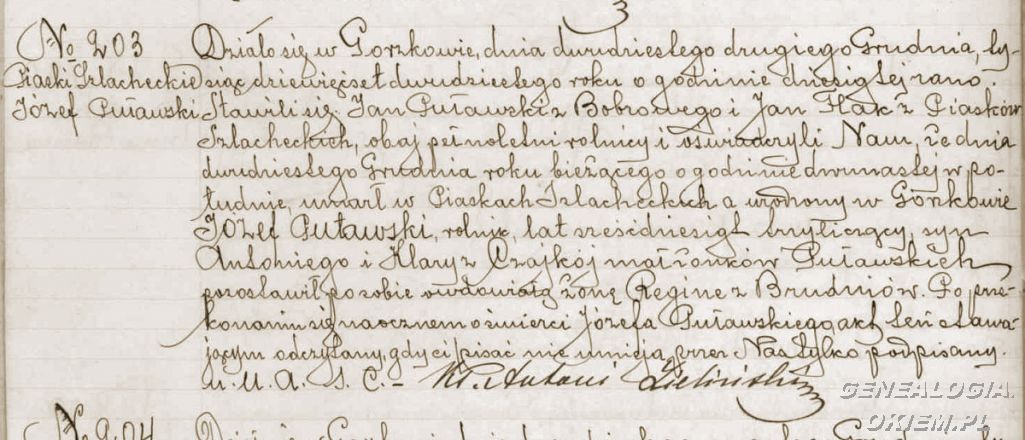 3
No 203
Piaski Szlacheckie
Józef Puławski
Działo się w Gorzkowie, dnia dwudziestego drugiego Grudnia, ty-
siąc dziewięćset dwudziestego roku o godzinie dziesiątej rano.
Stawili się: Jan Puławski z Bobrowego i Jan Flak z Piasków
Szlacheckich, obaj pełnoletni rolnicy i oświadczyli Nam, że dnia
dwudziestego Grudnia roku bieżącego o godzinie dwunastej w po-
łudnie, umarł w Piaskach Szlacheckich a urodzony w Górkowie
Józef Puławski, rolnik, lat sześćdziesiąt trzy liczący, syn
Antoniego i Klary z Czajków małżonków Puławskich
pozostawił po sobie owdowiałą żonę Reginę z Brudniów. Po prze-
konaniu się naocznem o śmierci Józefa Puławskiego, akt ten stawa-
jącym odczytany, gdy ci pisać nie umieją, przez Nas tylko podpisany.
U. U. A. S. C. - Ks. Antoni Zieliński
No 204
GENEALOGIA.
OKIEM.PL